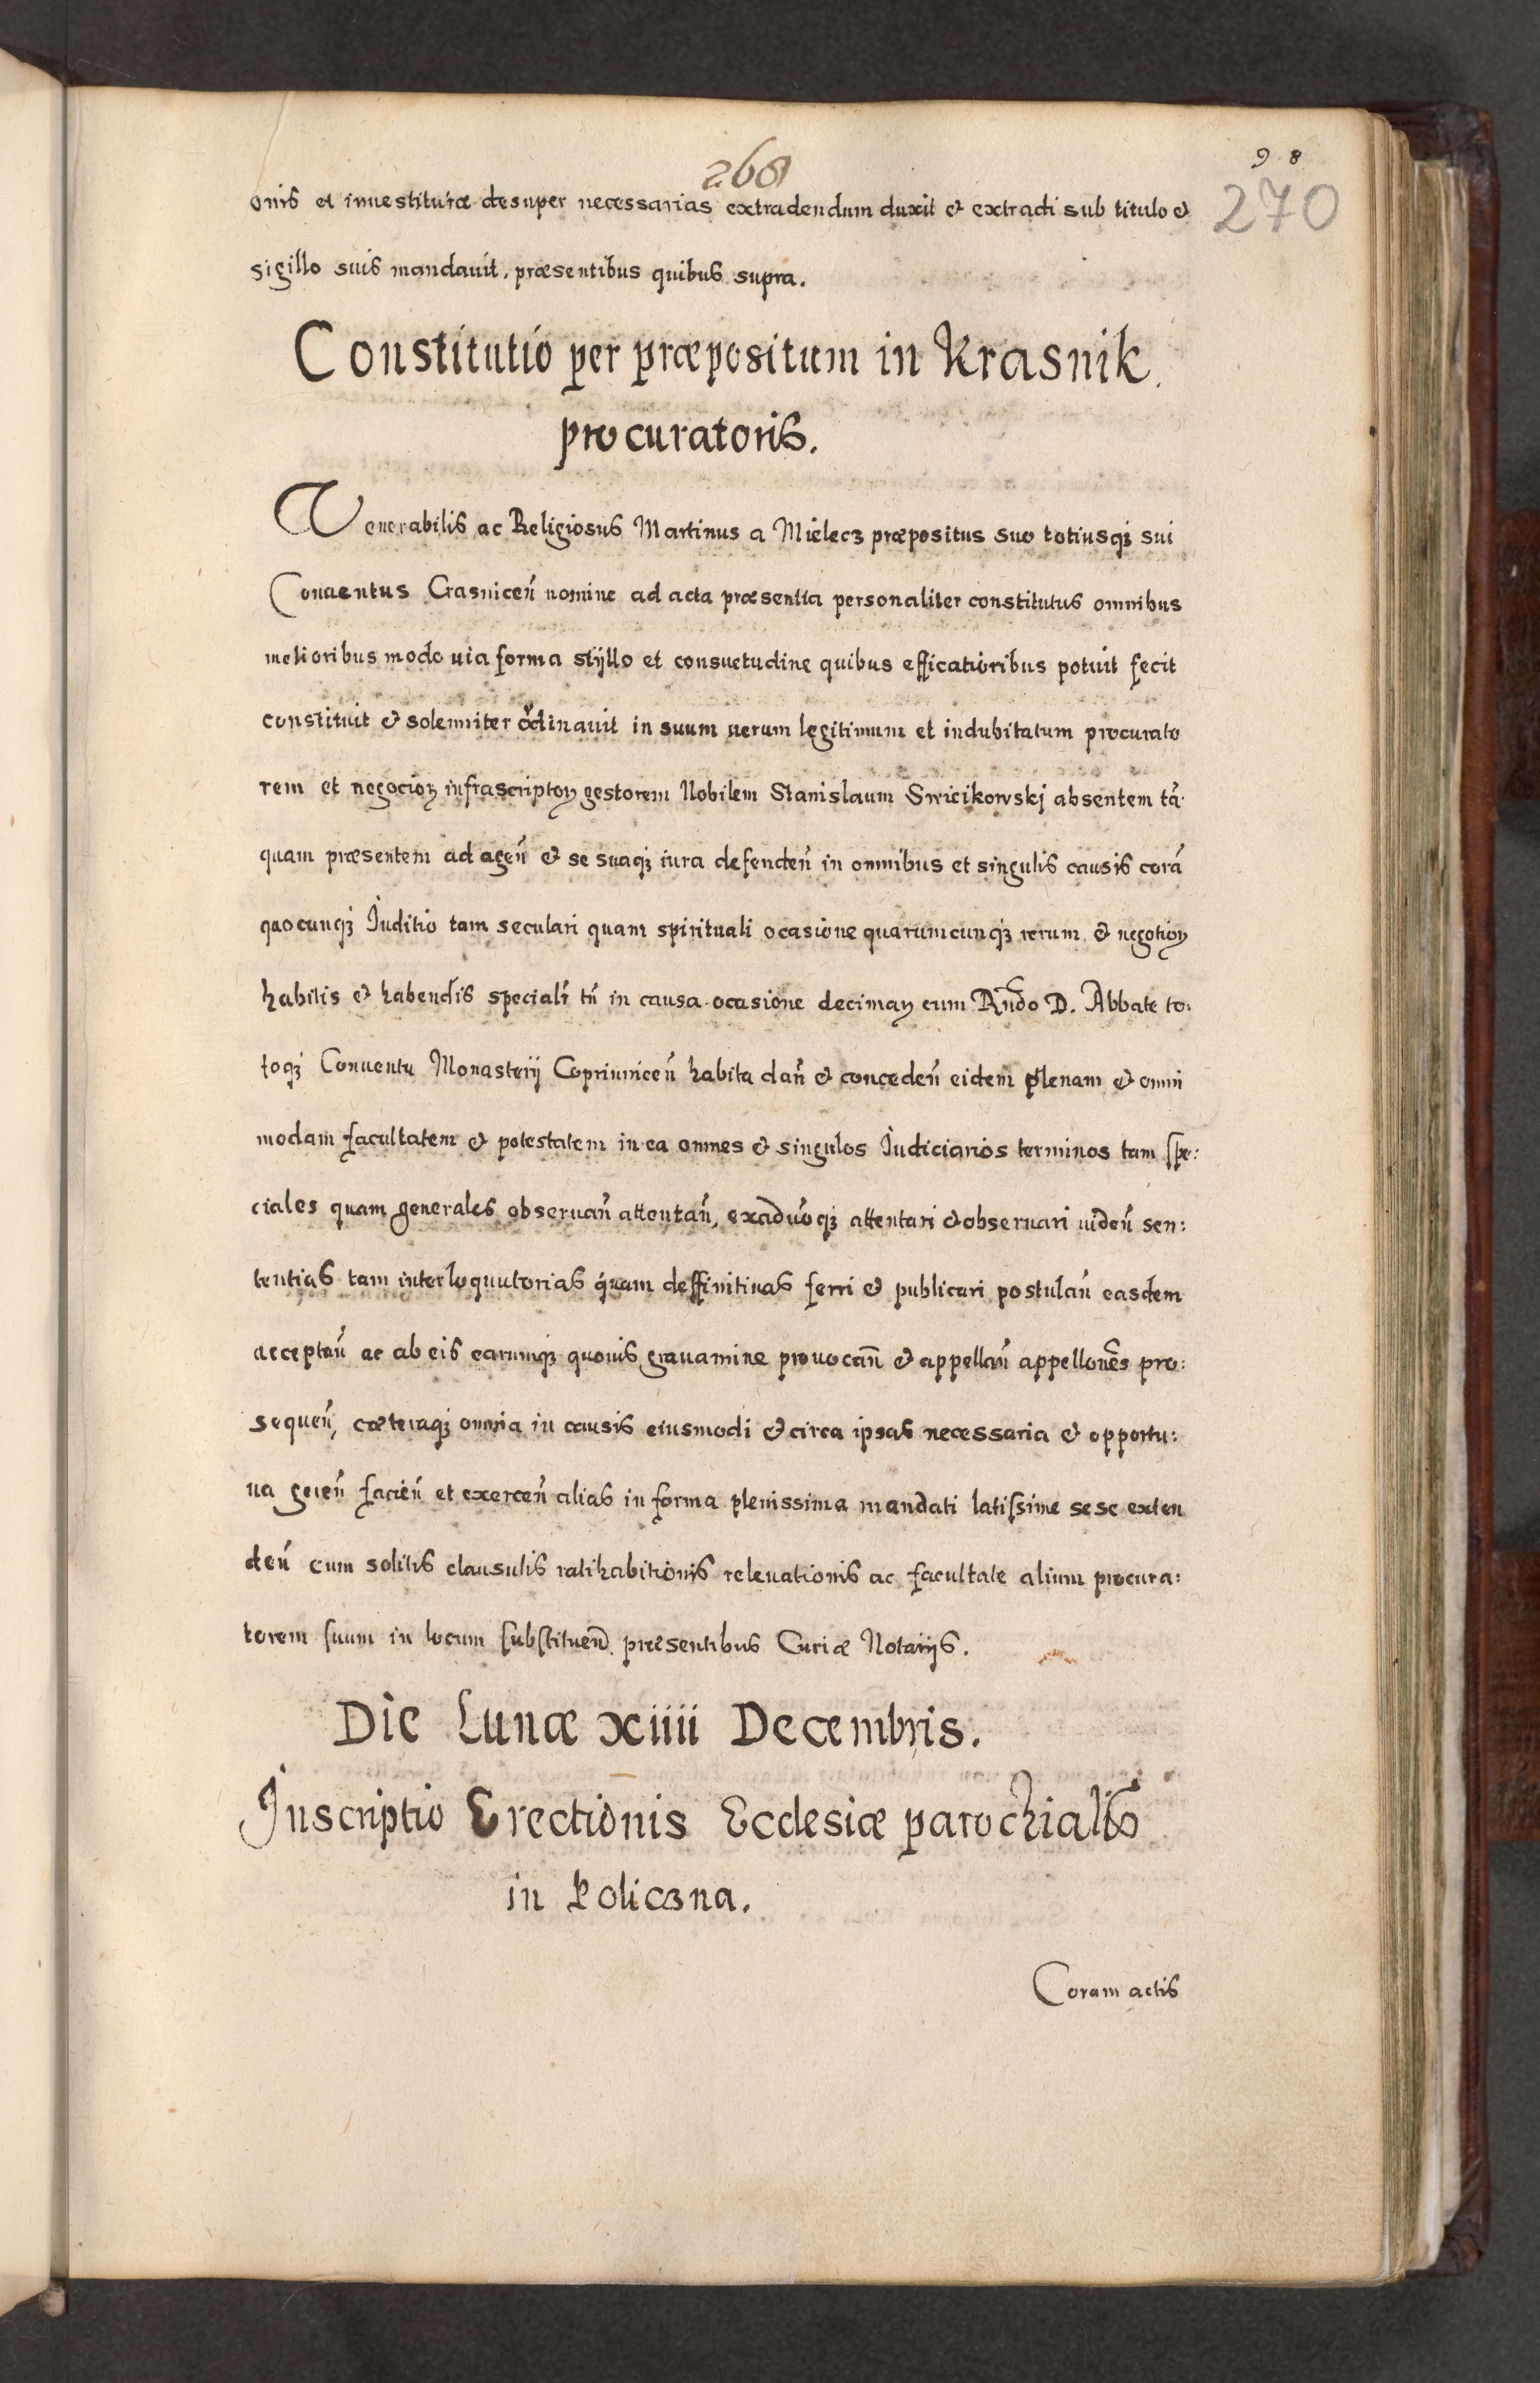 268
98
270
onis et inuestituræ desuper necessarias extradendum duxit & extradi sub titulo &
sigillo suis mandauit, præsentibus quibus supra.
Constitutio per præpositum in Krasnik
procuratoris.
Venerabilis ac Religiosus Martinus a Mielecz præpositus suo totiusqꝫ sui
Conuentus Crasniceñ nomine ad acta præsentia personaliter constitutus omnibus
melioribus modo uia forma stÿllo et consuetudine quibus efficatioribus potuit fecit
constituit & solenniter ordinauit in suum uerum legitimum et indubitatum procurato
rem et negocioꝝ infrascriptoꝝ gestorem Nobilem Stanislaum Swieikowskj absentem tã
quam præsentem ad ageñ & se suaqꝫ iura defendeñ in omnibus et singulis causis corã
quocunqꝫ Juditio tam seculari quam spirituali ocasione quarumcunqꝫ rerum & negotioꝝ
habitis & habendis specialr̃ tñ in causa ocasione decimaꝝ cum Rñdo D. Abbate to:
toqꝫ Conuentu Monasterij Copriuniceñ habita dañ & concedeñ eidem plenam & omni
modam facultatem & potestatem in ea omnes & singulos Judiciarios terminos tam spe:
ciales quam generales obseruañ attentañ, exaduõqꝫ attentari & obseruari uideñ sen:
tentias tam interloquutorias quam deffinitiuas ferri & publicari postulañ easdem
acceptañ ac ab eis earumqꝫ quouis grauamine prouocañ & appellañ appellones̃ pro:
sequeñ, cæteraqꝫ omnia in causis eiusmodi & circa ipsas necessaria & opportu:
na gereñ facieñ et exerceñ alias in forma plenissima mandati latissime sese exten
deñ cum solitis clausulis ratihabitionis releuationis ac facultate alium procura:
torem suum in locum substitueñ. præsentibus Curiæ Notarijs.
Die Lunæ xiiii Decembris.
Inscriptio Erectionis Ecclesiæ parochialis
in Policzna.
Coram actis